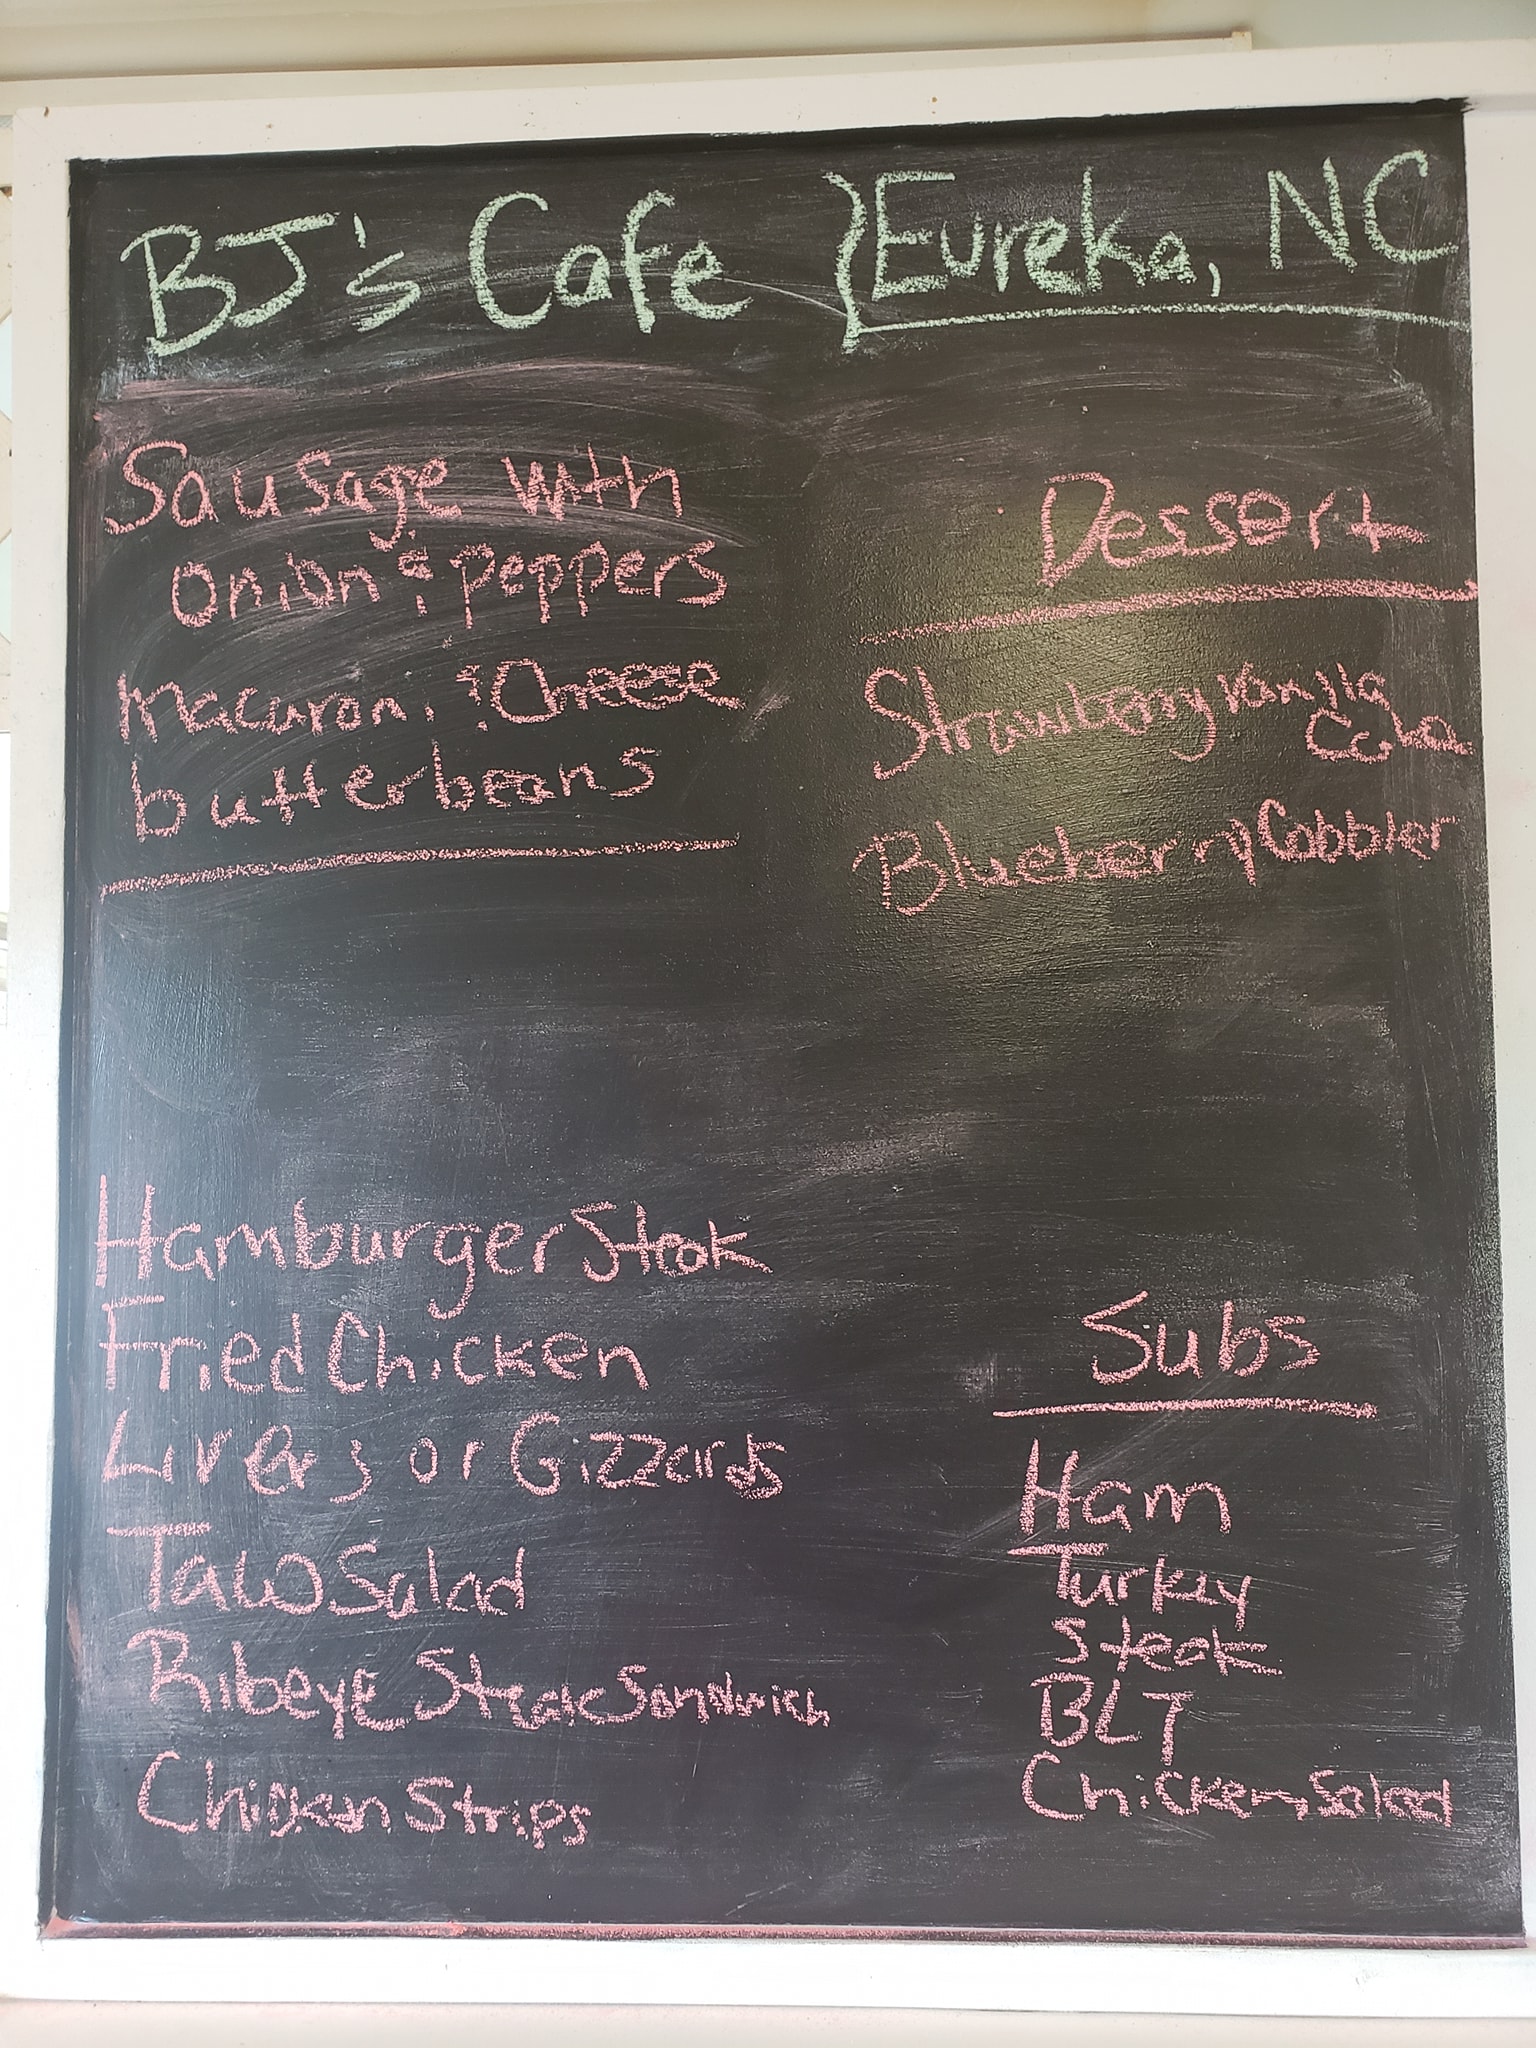 BJ's Cafe } Eureka, NC
Sausage with
onion & peppers
macaroni & Cheese
butterbeans
Dessert
Strawberry Vanilla
Blueberry Cobbler
Hamburger Steak
Fried Chicken
Livers or Gizzards
Taco Salad
Ribeye Steak Sandwich
Chicken Strips
Subs
Ham
Turkey
Steak
BLT
Chicken Salad